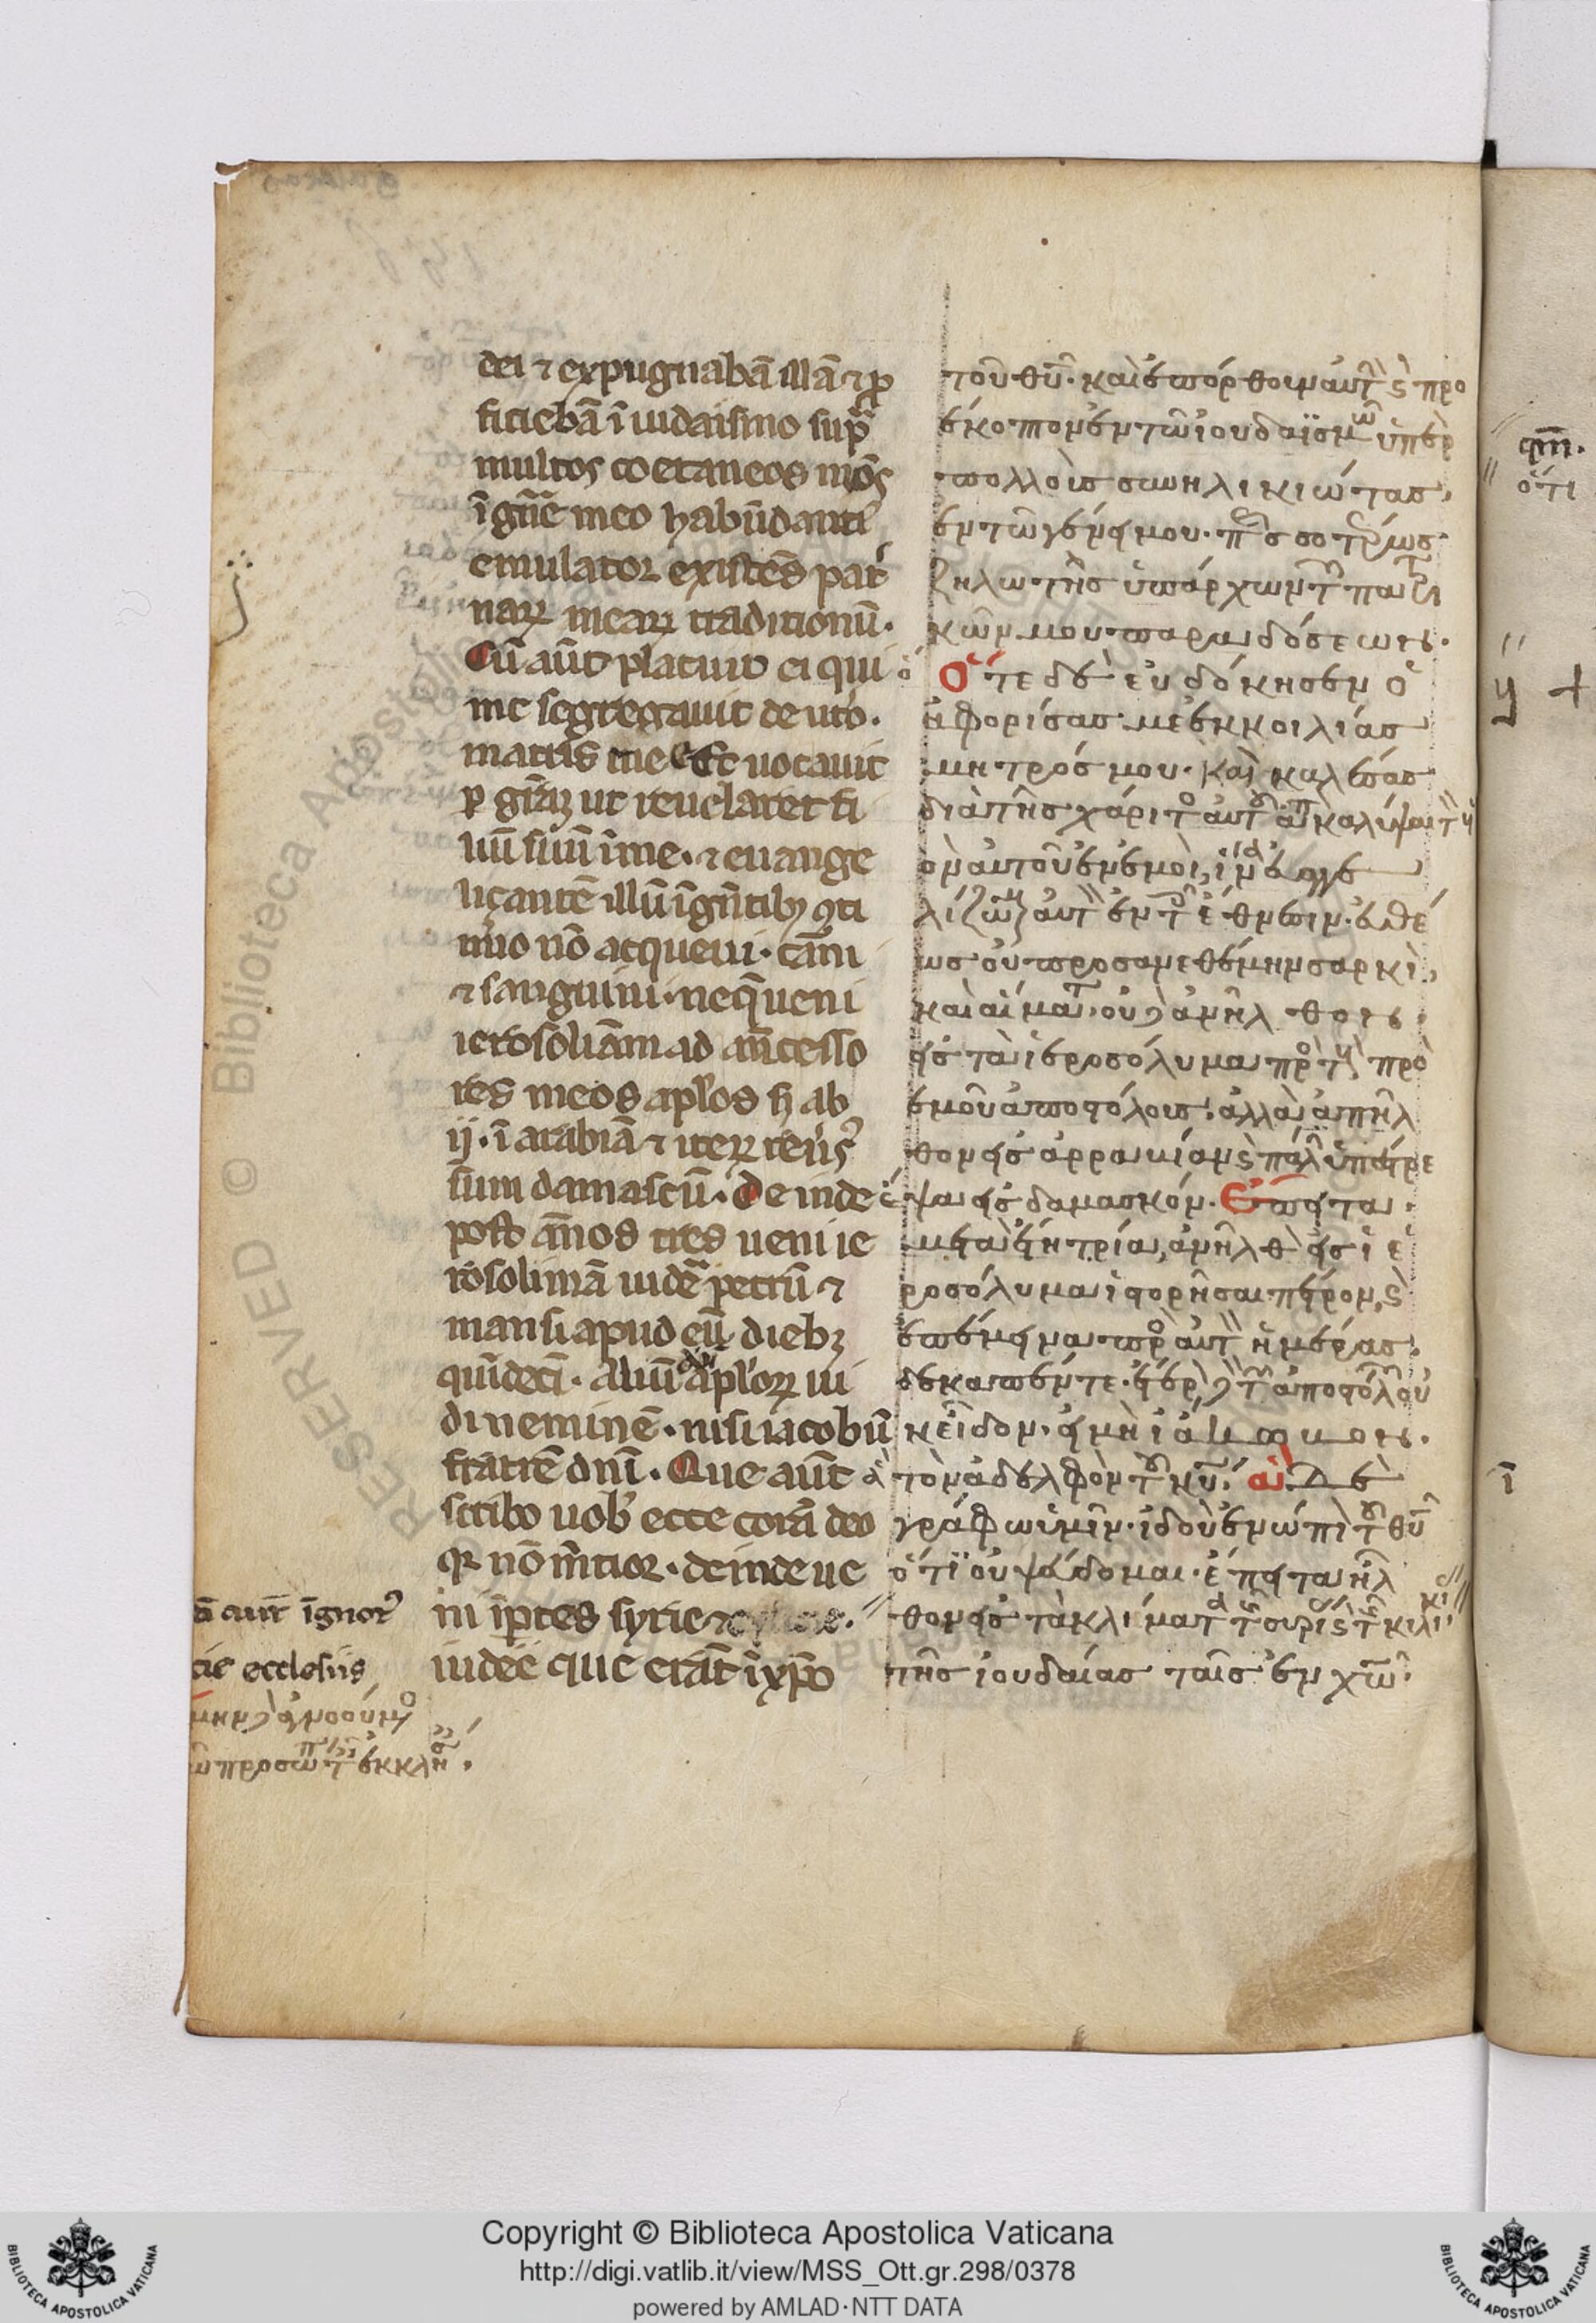 dei ⁊ expugnabā illā ⁊ ꝓ
ficiebā ī iudaismo supᵃ
multos coetaneos mōs
ī gn̄e meo habūdanti
emulator existēs pat
narꝝ mearꝝ traditionū·
Cū aūt placuit ei qui
me segregauit de uto·
matris mee Et uocauit
ut reuelaret fi
liū suū ī me· ⁊ euange
liçantē illū ī
nō acqueui· carni
⁊ sanguini· neq̄ ueni
ierosoliām ad ancesso
res meos apl'os ab
ij· ī arabiā ⁊ iterꝝ
sum damascū· Deinde
post ānos tres ueni ie
rosolimā uidē petrū ⁊
mansi apud eū dieb;
quīdecī· Aliū aūt apl'orꝝ ui
di neminē· nisi iacobū
fratrē dnī· Que aūt
scribo uob' ecce corā deo
nō m̄tior· deinde ue
ni ī ꝑtes syrie
iudee que erāt ī xp̄o
ā aūt īgnot᾽
cie ecclesiis
τοῦ θῦ· καὶ ἐπόρθουν αὐτ ϛ προ
έκοπτον ἐν τῶ ἰουδαϊσμῶ ὑπὲρ
πολλοὺς συνηλικιώτας,
ἐν τῶ γένει μου·
ζηλωτὴς ὑπάρχων τ πατρι
κῶν μου παραδόσεων.
Ὅτε δὲ εὐδόκησεν ὁ
ἀφορίσας με ἐκ κοιλίας
μητρός μου· καὶ καλέσας
διὰ τῆς χάριτ αὐτ ἀπκαλύψαι τ υἱ
ὸν αὐτοῦ ἐν ἐμοὶ, ἵνα εὐαγγε
λίζωμ αὐτ ἐν τ ἔθνεσιν· εὐθέ
ως οὐ προσανεθέμην σαρκὶ,
καὶ αἵματ· οὐδ ἀνῆλθον
εἰς τὰ ἱεροσόλυμα πρ τ πρὸ
ἐμοῦ ἀποστόλους· ἀλλὰ ἀπῆλ
θον εἰς ἀρραβίαν ϛ πάλ ὑπέστρε
ψα εἰς δαμασκόν· Ἔπειτα
μετὰ ἔτη τρία, ἀνῆλθ εἰς ἱε
ροσόλυμα ἱστορῆσαι πέτρον, ϛ
ἐπέμεινα πρ αὐτ ἡμέρας
δεκαπέντε· ἕτερ δ τ ἀποστόλ οὐ
κ εἶδον· εἰ μὴ ἰάκωβον.
τὸν ἀδελφὸν τ κῦ· ἃ δὲ
γράφω ὑμῖν· ἰδοὺ ἐνώπι τ θῦ
ὅτι οὐ ψεύδομαι· ἔπειτα ἦλ
θον εἰς τὰ κλίματ τ συρί ϛ τ κιλι
τῆς ἰουδαίας ταῖς ἐν χῶ·
μην δ ἀγνοούμ
προσώπ τ ἐκκλη
RESERVED © Biblioteca Apostolica Vaticana
Copyright © Biblioteca Apostolica Vaticana
http://digi.vatlib.it/view/MSS_Ott.gr.298/0378
powered by AMLAD·NTT DATA
BIBLIOTECA APOSTOLICA VATICANA
BIBLIOTECA APOSTOLICA VATICANA